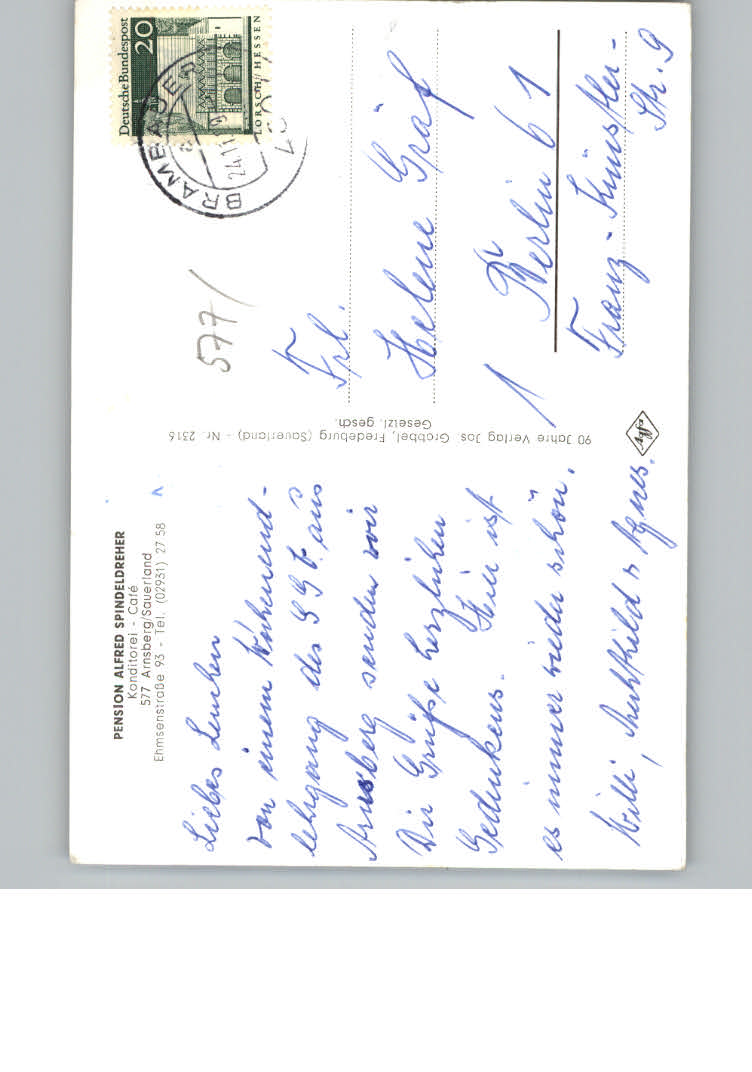 PENSION ALFRED SPINDELDREHER
Konditorei - Café
577 Arnsberg/Sauerland
Ehmsenstraße 93 - Tel. (02931) 27 58
Liebes Lenchen
von einem Wochenend-
lehrgang des S G V. aus
Arnsberg senden wir
Dir Grüße herzlichen
Gedenkens. Hier ist
es immer wieder schön.
Willi, u. Agnes.
90 Jahre Verlag Jos. Grobbel, Fredeburg (Sauerland) - Nr. 2316
Gesetzl. gesch.
Agfa
Deutsche Bundespost
20
LORSCH / HESSEN
BRAMBAUER
24.11.
577/
Frl.
Helene Gräf
1 Berlin 61
Franz-Künstler-
Str. 9